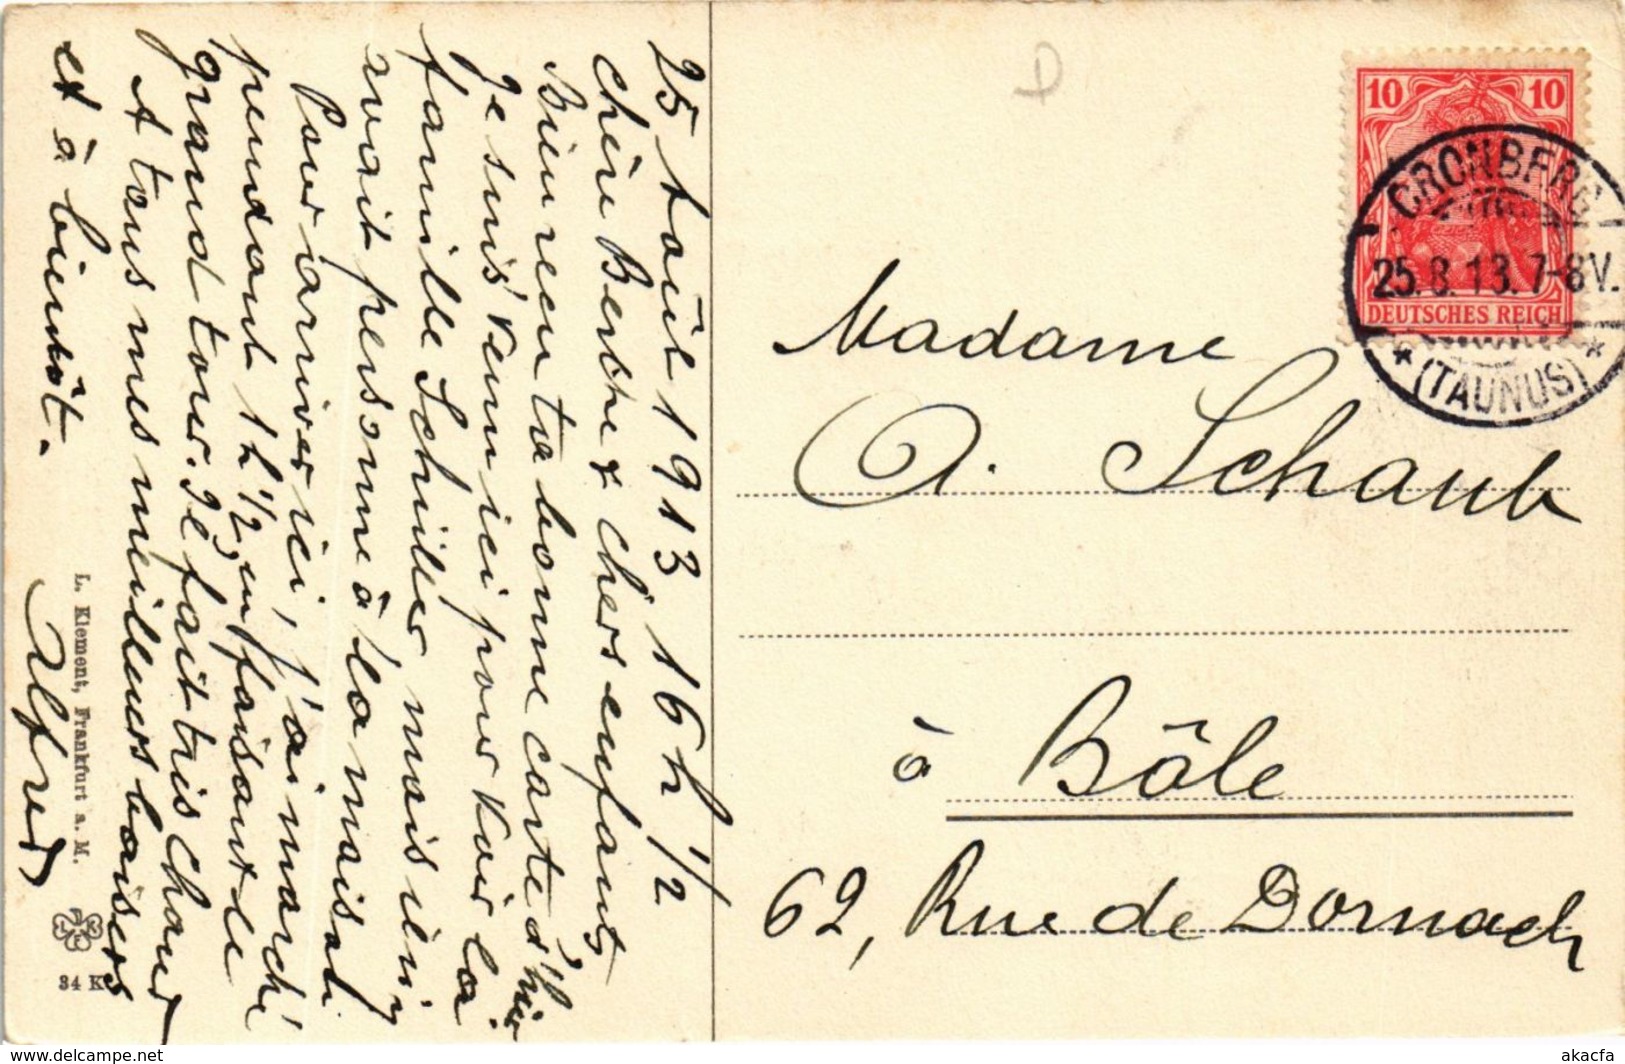 25 Août 1913 16 h 1/2
Chère Berthe & chers enfants
Bien reçu ta bonne carte d'hier
Je suis venu ici pour voir la
famille Schiller mais il n'y
avait personne à la maison
Pour arriver ici, j'ai marché
pendant 1 h 1/2, en faisant le
grand tour. Il fait très chaud
A tous mes meilleurs baisers
et à bientôt.
Alfred
L. Klement, Frankfurt a. M.
34 K
10 10
DEUTSCHES REICH
CRONBERG
25.8.13.7-8V.
* (TAUNUS) *
Madame
A. Schaub
à Bâle
62, Rue de Dornach
www.delcampe.net
akacfa